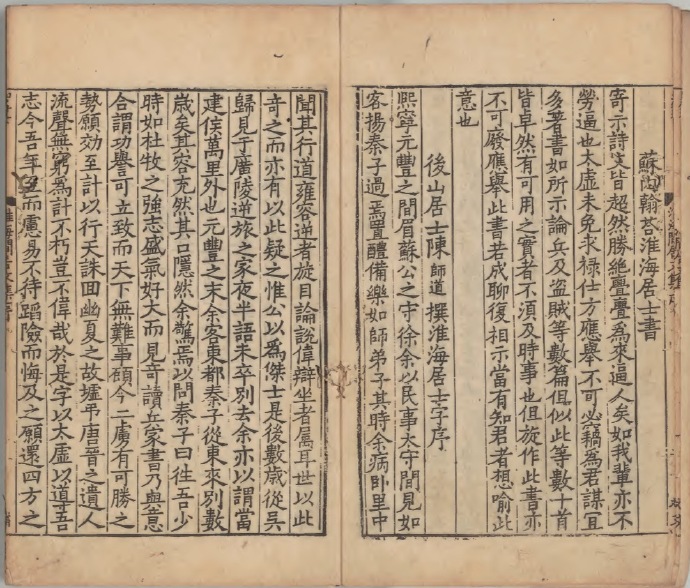 蘇內翰荅淮海居士書
寄示詩文皆超然勝絕亹亹焉來逼人矣如我輩亦不
勞逼也太虛未免求禄仕方應舉不可必竊為君謀宜
多著書如所示論兵及盜賊等數篇但似此等數十首
皆卓然有可用之實者不湏及時事也但旋作此書亦
不可廢應舉此書若成聊復相示當有知君者想喻此
意也
後山居士陳師道撰淮海居士字序
熙寧元豐之間眉蘇公之守徐余以民事太守間見如
客揚秦子過焉置醴備樂如師弟子其時余病卧里中
聞其行道雍容逆者旋目論說偉辯坐者属耳世以此
竒之而亦有以此疑之惟公以為傑士是後數歲從吳
歸見于廣陵逆旅之家夜半語未卒別去余亦以謂當
建侯萬里外也元豐之末余客東都秦子從東來別數
歲矣其容充然其口隱然余驚焉以問秦子曰徃吾少
時如杜牧之強志盛氣好大而見竒讀兵家書乃與意
合謂功譽可立致而天下無難事顧今二虜有可勝之
勢願効至計以行天誅回幽夏之故墟弔唐晉之遺人
流聲無窮為計不朽豈不偉哉於是字以太虛以導吾
志今吾年至而慮易不待蹈險而悔及之願還四方之